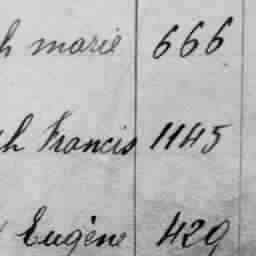 h marie 666
h Francis 1145
Eugène 429